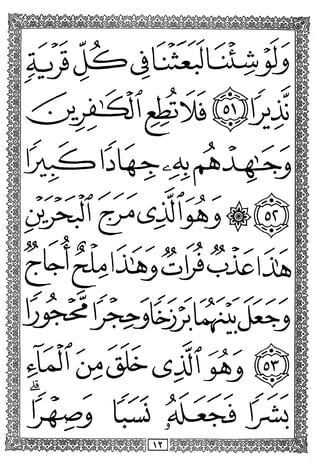 وَلَوْ شِئْنَا لَبَعَثْنَا فِي كُلِّ قَرْيَةٍ
نَّذِيرًا ٥١ فَلَا تُطِعِ الْكَافِرِينَ
وَجَاهِدْهُم بِهِ جِهَادًا كَبِيرًا
٥٢ ۞ وَهُوَ الَّذِي مَرَجَ الْبَحْرَيْنِ
هَٰذَا عَذْبٌ فُرَاتٌ وَهَٰذَا مِلْحٌ أُجَاجٌ
وَجَعَلَ بَيْنَهُمَا بَرْزَخًا وَحِجْرًا مَّحْجُورًا
٥٣ وَهُوَ الَّذِي خَلَقَ مِنَ الْمَاءِ
بَشَرًا فَجَعَلَهُ نَسَبًا وَصِهْرًا ۗ
١٢